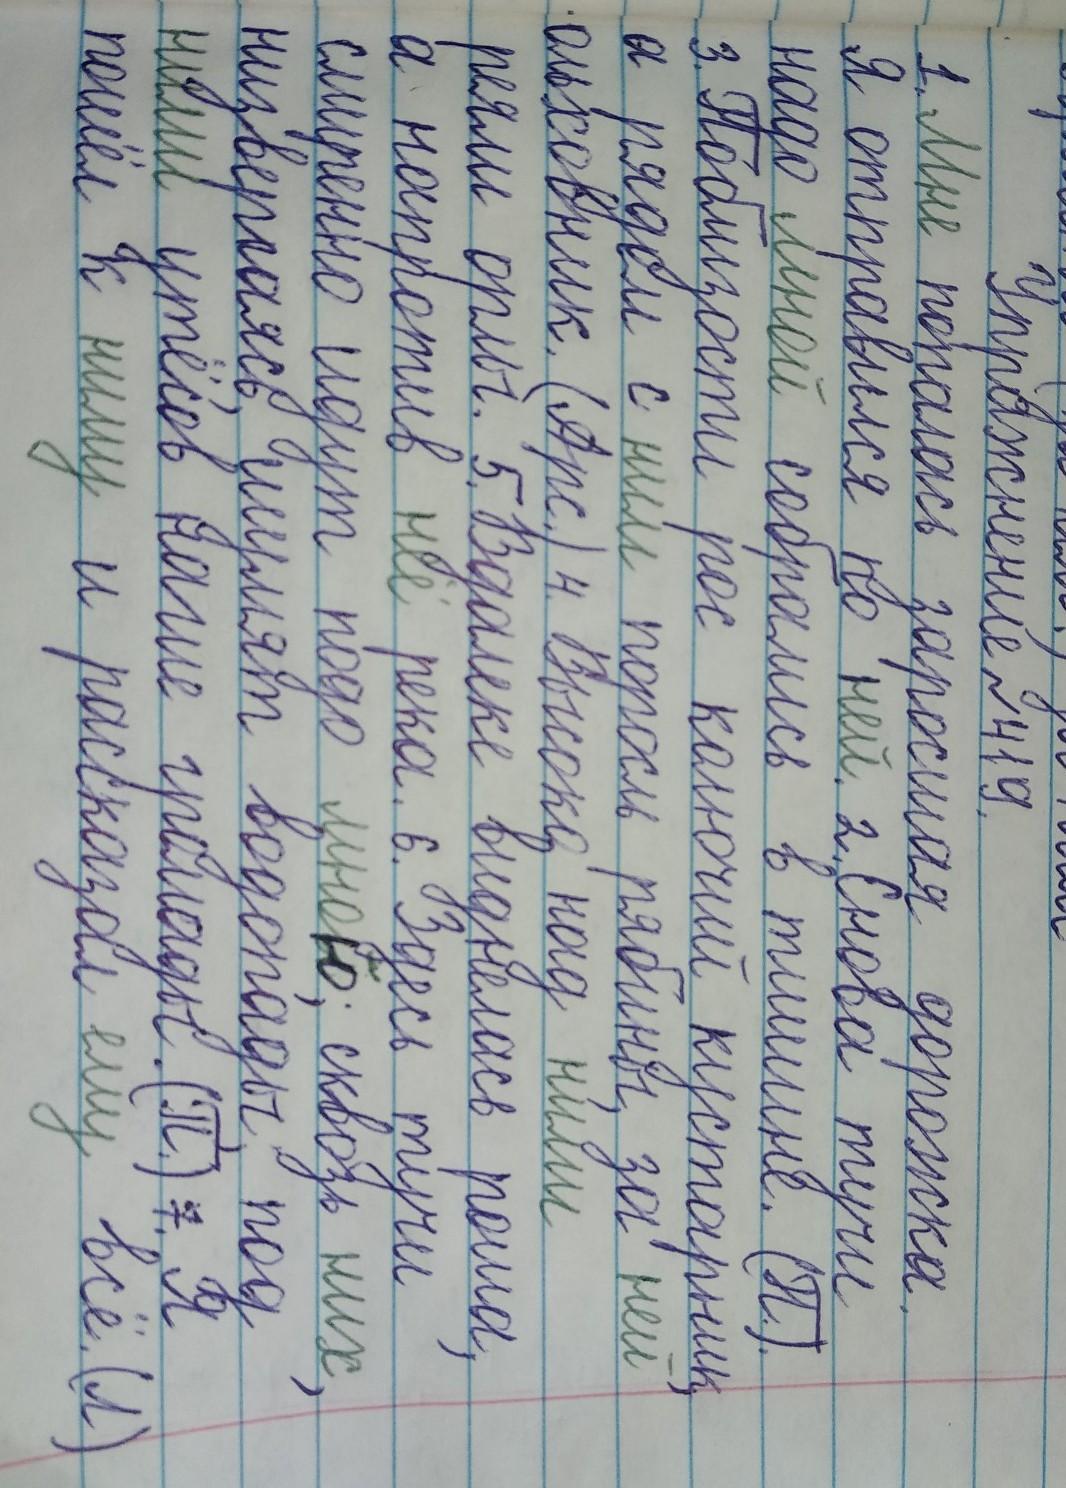 Упражнение №419.
1. Мне попалась заросшая дорожка.
Я отправился по ней. 2. Снова тучи
надо мной собрались в тишине. (П.).
3. Поблизости рос колючий кустарник,
а рядом с ним поросль рябины, за ней,
ольховник. (Арс.) 4 Высоко над ними
реяли орлы. 5. Вдалеке виднелась роща,
а напротив неё река. 6. Здесь тучи
смиренно идут подо мной; сквозь них,
низвергаясь, шумят водопады, под
ними утёсов нагие громады. (П.) 7. Я
пошёл к нему и расказал ему всё. (Л)